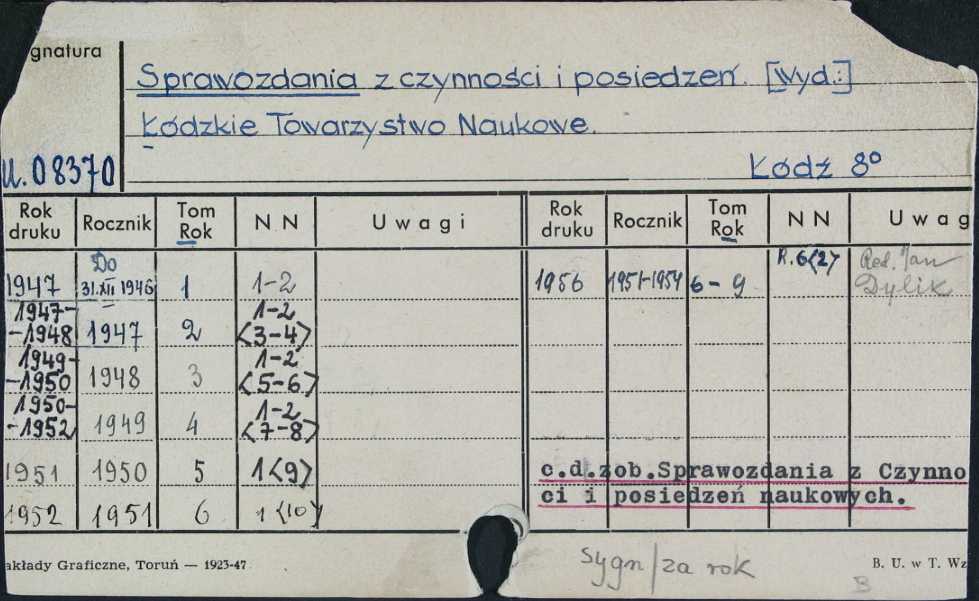 gnatura
Sprawozdania z czynności i posiedzeń. [Wyd.:]
Łódzkie Towarzystwo Naukowe.
U.08370
Łódź 8°
Rok druku Rocznik Tom Rok NN Uwagi Rok druku Rocznik Tom Rok NN Uwag
1947 Do 31.XII 1946 1 1-2
1947-1948 1947 2 1-2 <3-4>
1949-1950 1948 3 1-2 <5-6>
1950-1952 1949 4 1-2 <7-8>
1951 1950 5 1<9>
1952 1951 6 1<10>
1956 1951-1954 6-9 R.6<2> Red. Jan Dylik
c.d.zob.Sprawozdania z Czynno
ci i posiedzeń naukowych.
akłady Graficzne, Toruń — 1923-47
sygn/za rok
B. U. w T. Wz
B